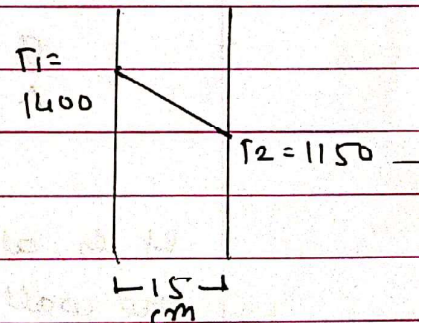 T1=
1400
T2 = 1150
15
cm